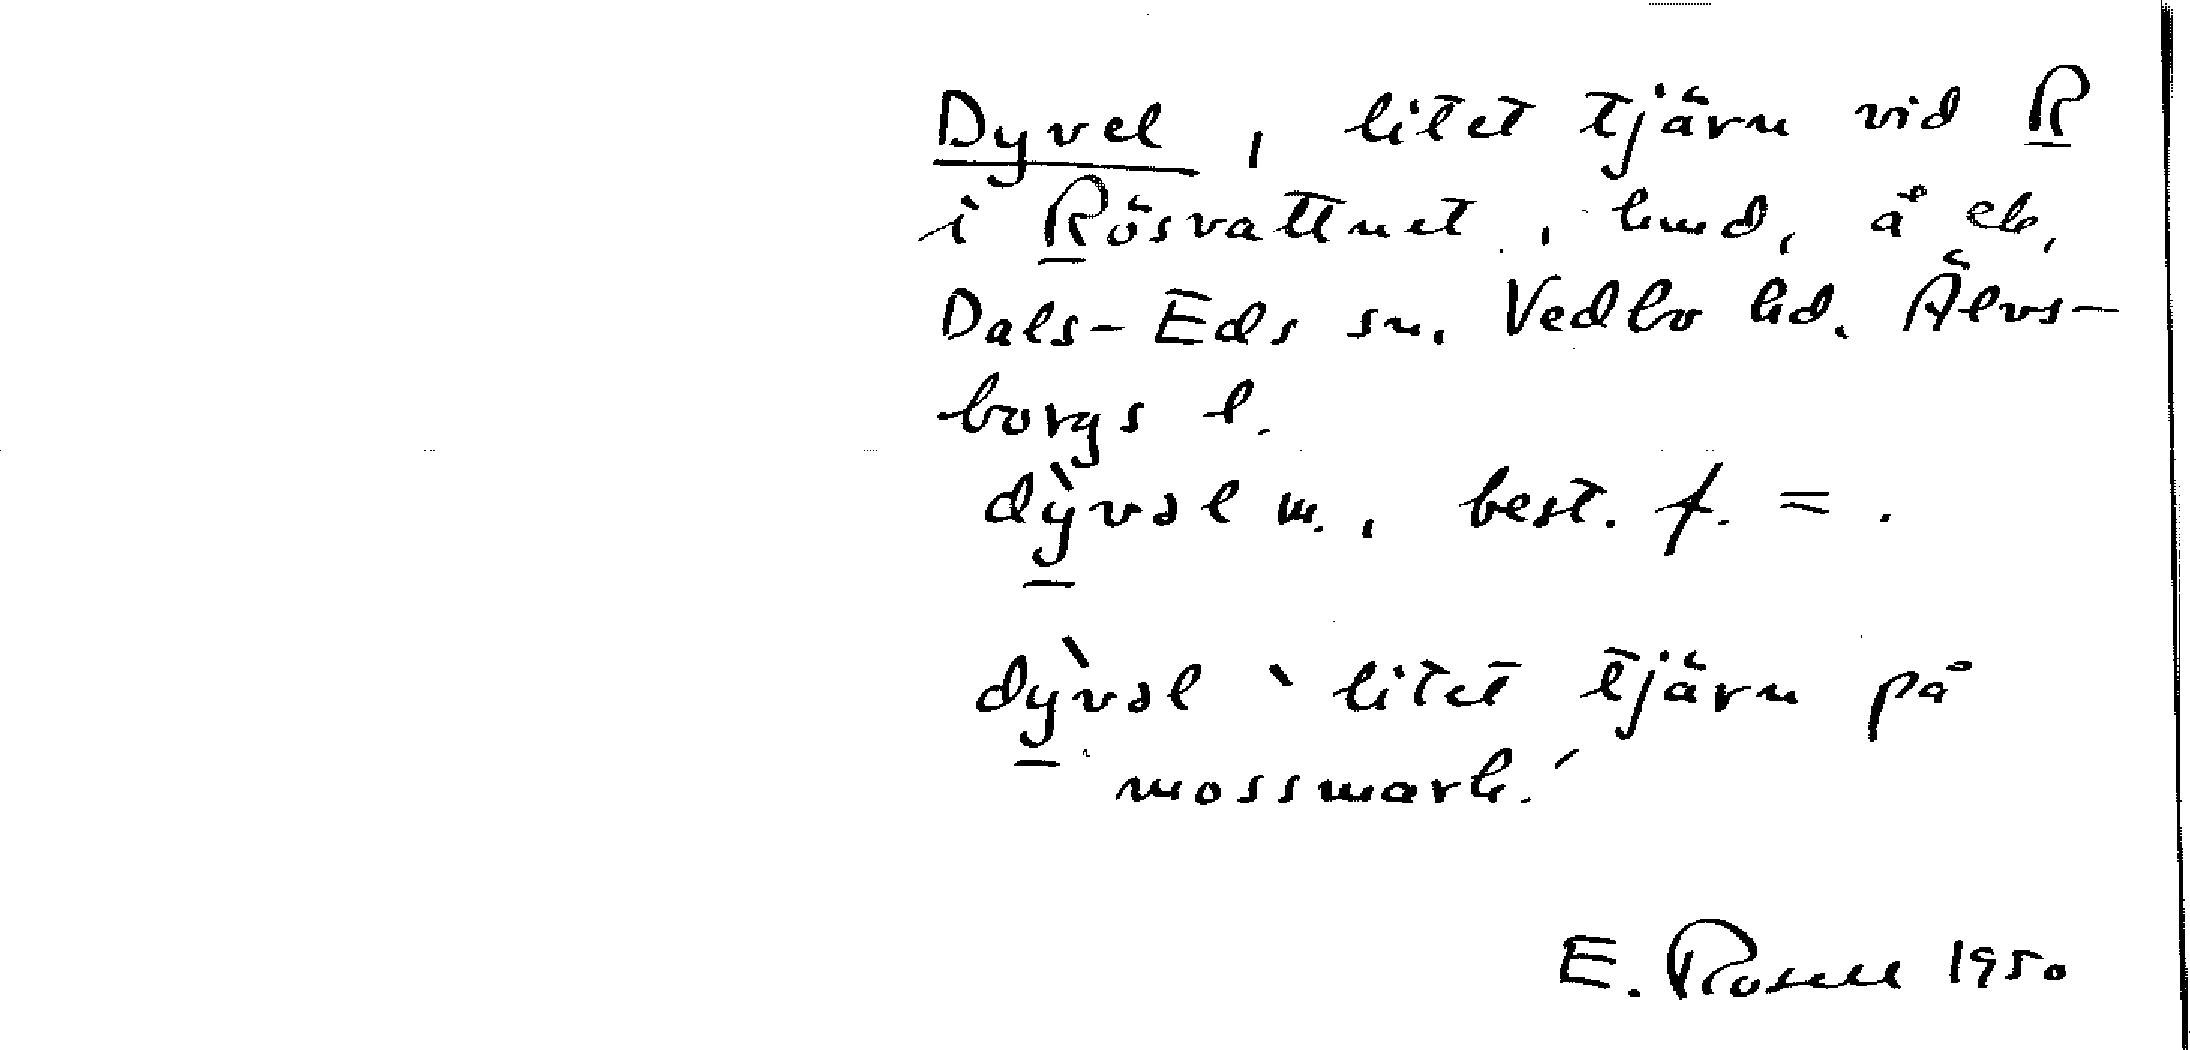 Dyvel, litet tjärn vid R
i Rösvattnet, hmd, å ek,
Dals-Eds sn. Vedbo hd. Älvs-
borgs l.
dỳ̱vəl m., best. f. = .
dỳ̱vəl ‵litet tjärn på
mossmark.′
E. Rosell 1950